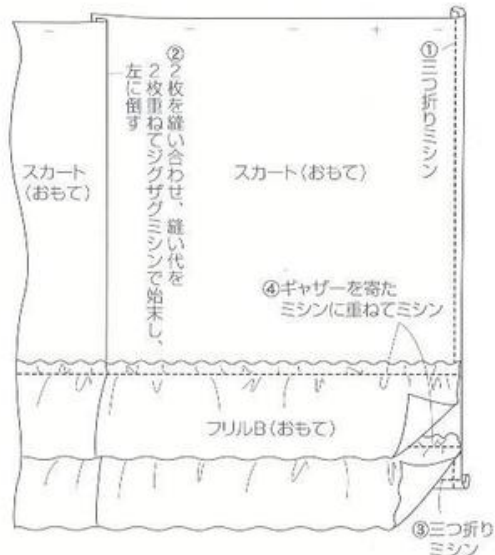 ①三つ折りミシン
②2枚を縫い合わせ、縫い代を
2枚重ねてジグザグミシンで始末し、
左に倒す
スカート
(おもて)
スカート(おもて)
④ギャザーを寄た
ミシンに重ねてミシン
フリルB(おもて)
③三つ折り
ミシン